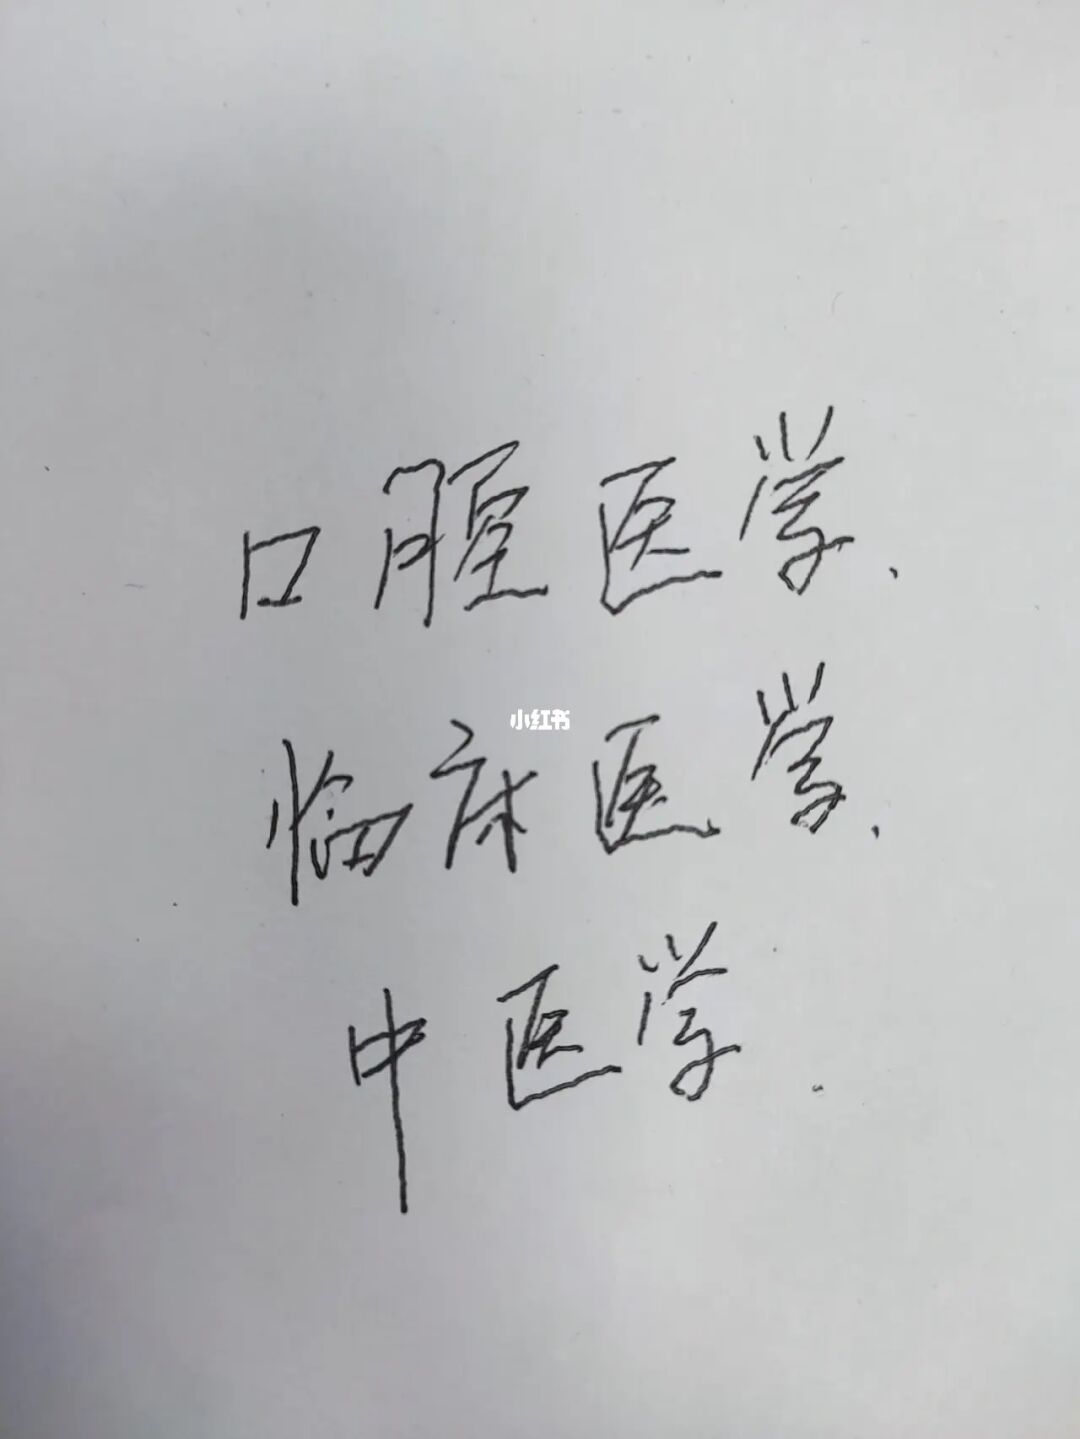 口腔医学.
小红书
临床医学.
中医学.